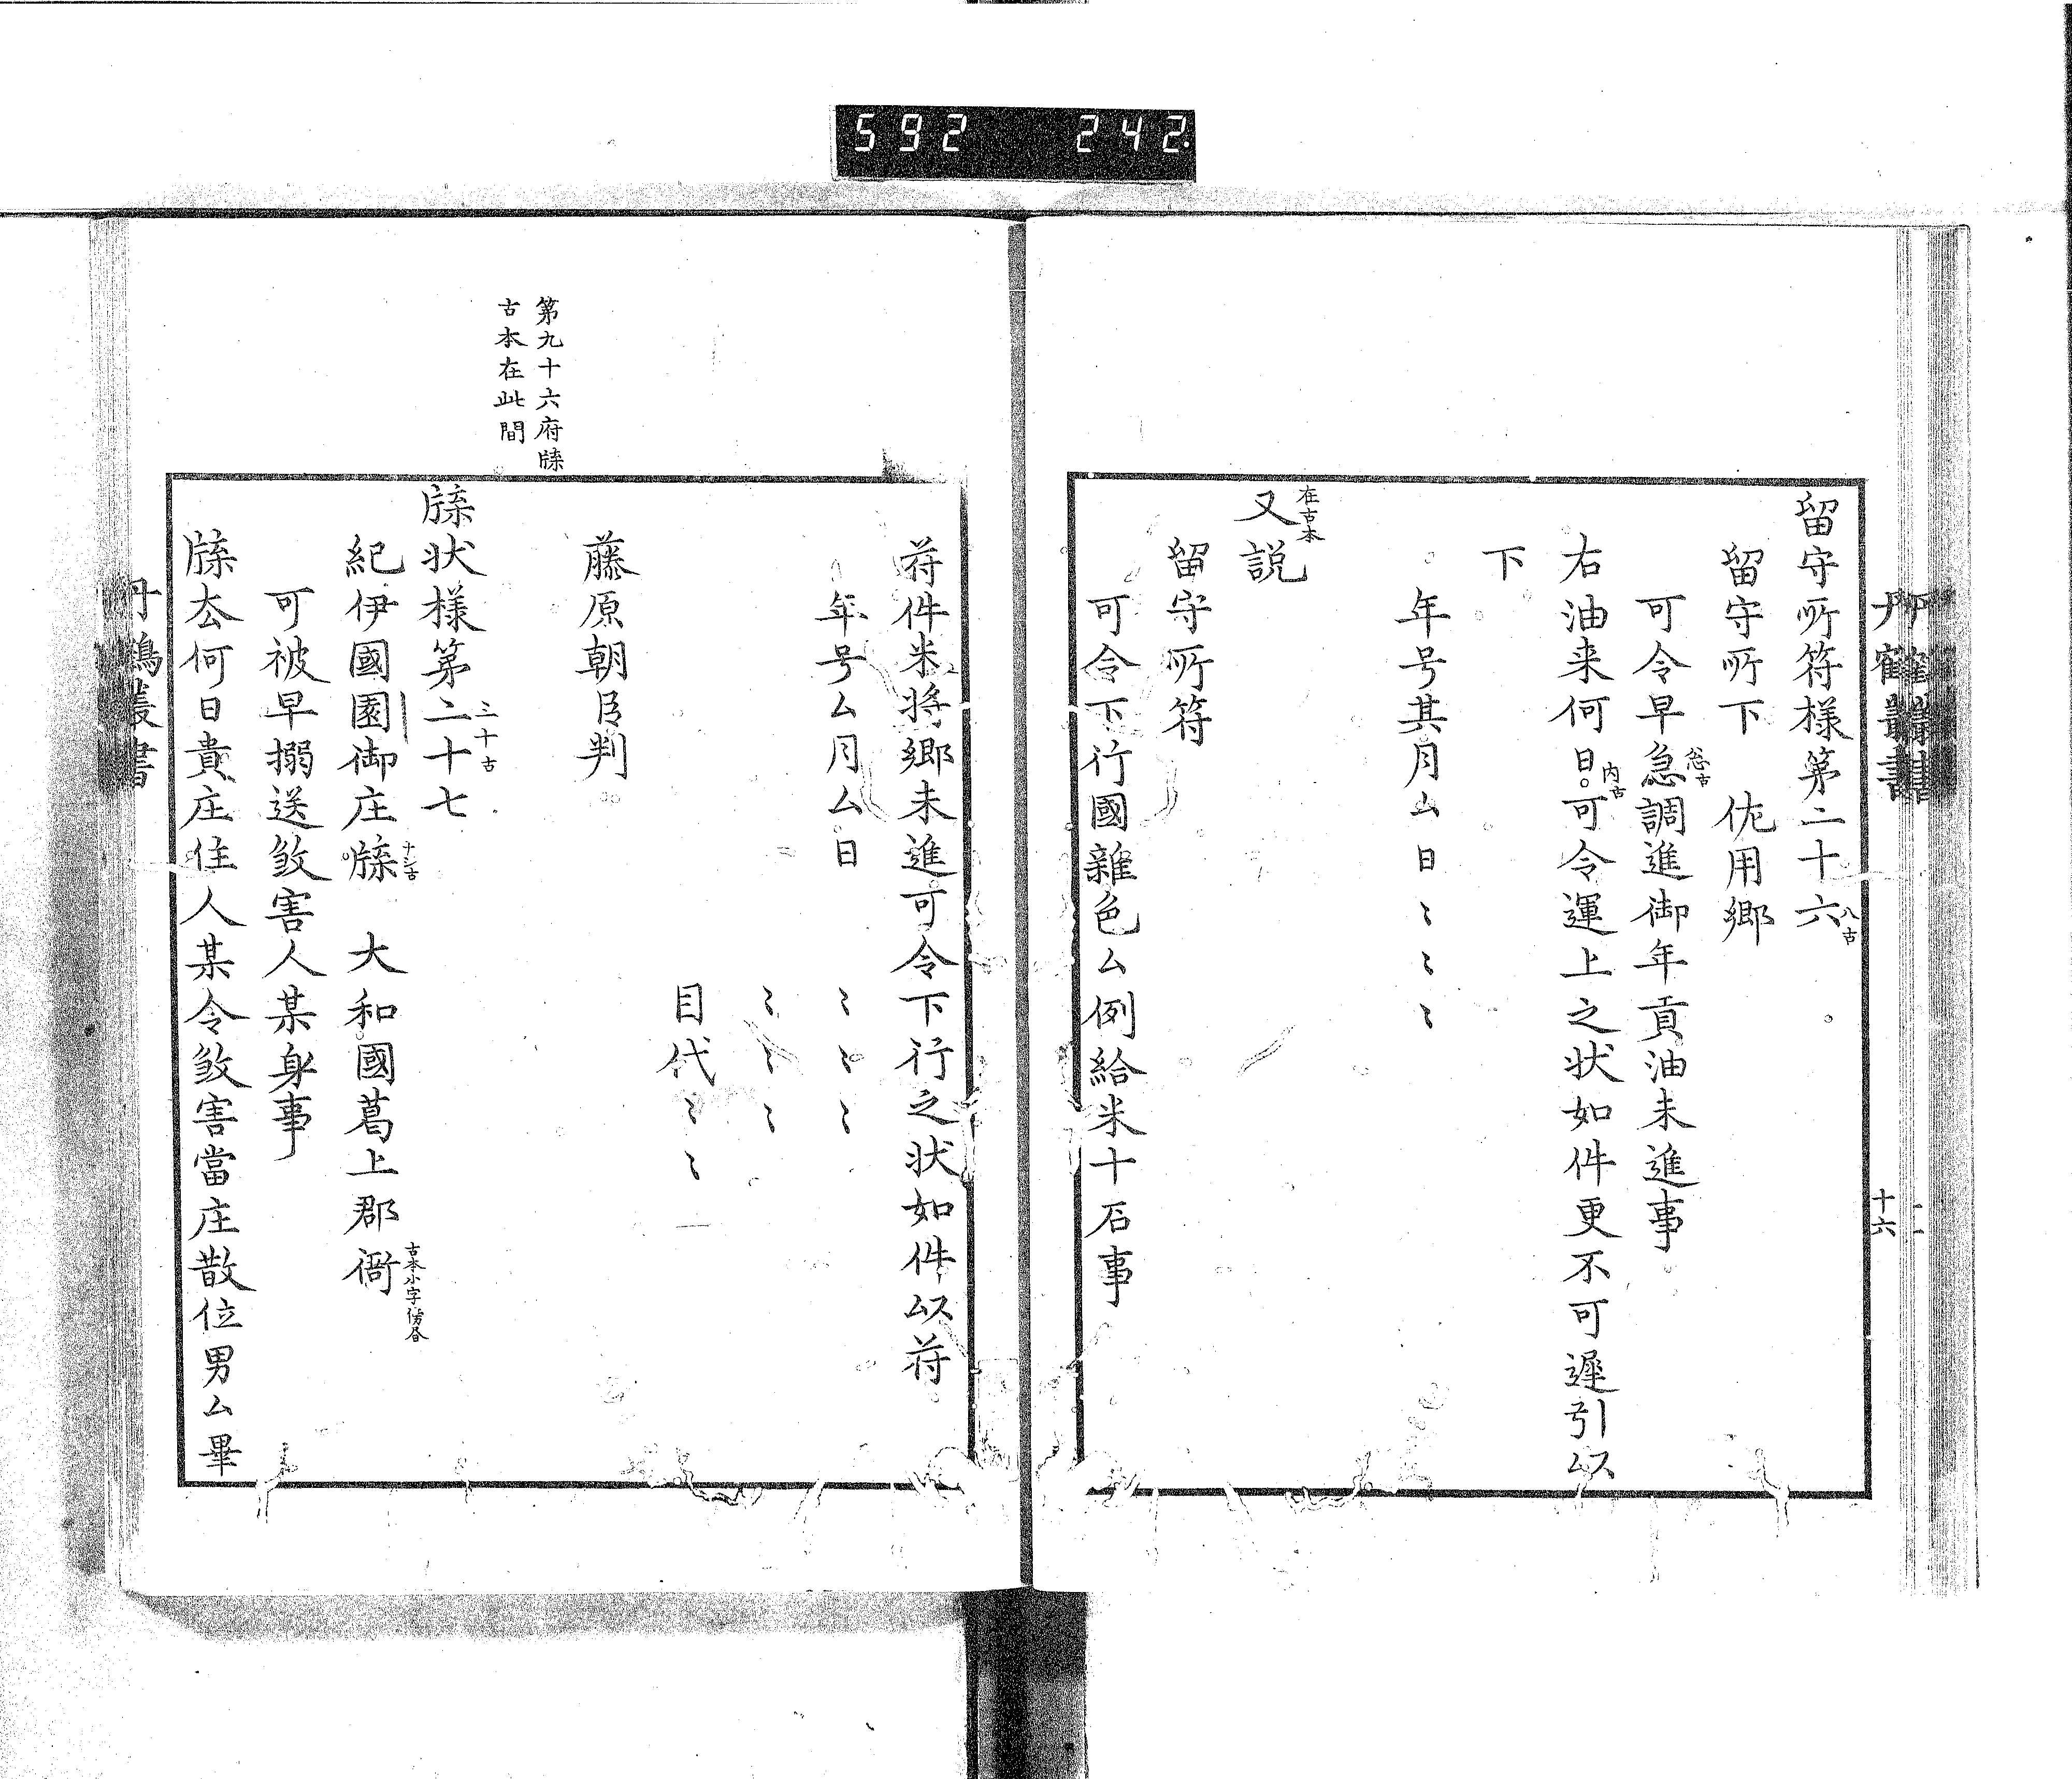 592 242
留守所符様第二十六
八古
留守所下 佐用郷
可令早急調進御年貢油未進事
怱古
右油来何日。可令運上之状如件更不可遅引以
内古
下
年号其月ム日〻〻〻
又説
在古本
留守所符
可令下行國雜色ム例給米十石事
十六
第九十六府牒
古本在此間
苻件米將郷未進可令下行之状如件以苻
年号ム月ム日 〻〻〻
〻〻〻
目代〻〻
藤原朝臣判
牒状様第二十七
三十古
紀伊國園御庄牒 大和國葛上郡衙
ナシ古
古本小字傍書
可被早搦送敓害人某身事
牒厺何日貴庄住人某令敓害當庄散位男ム畢
丹鶴叢書